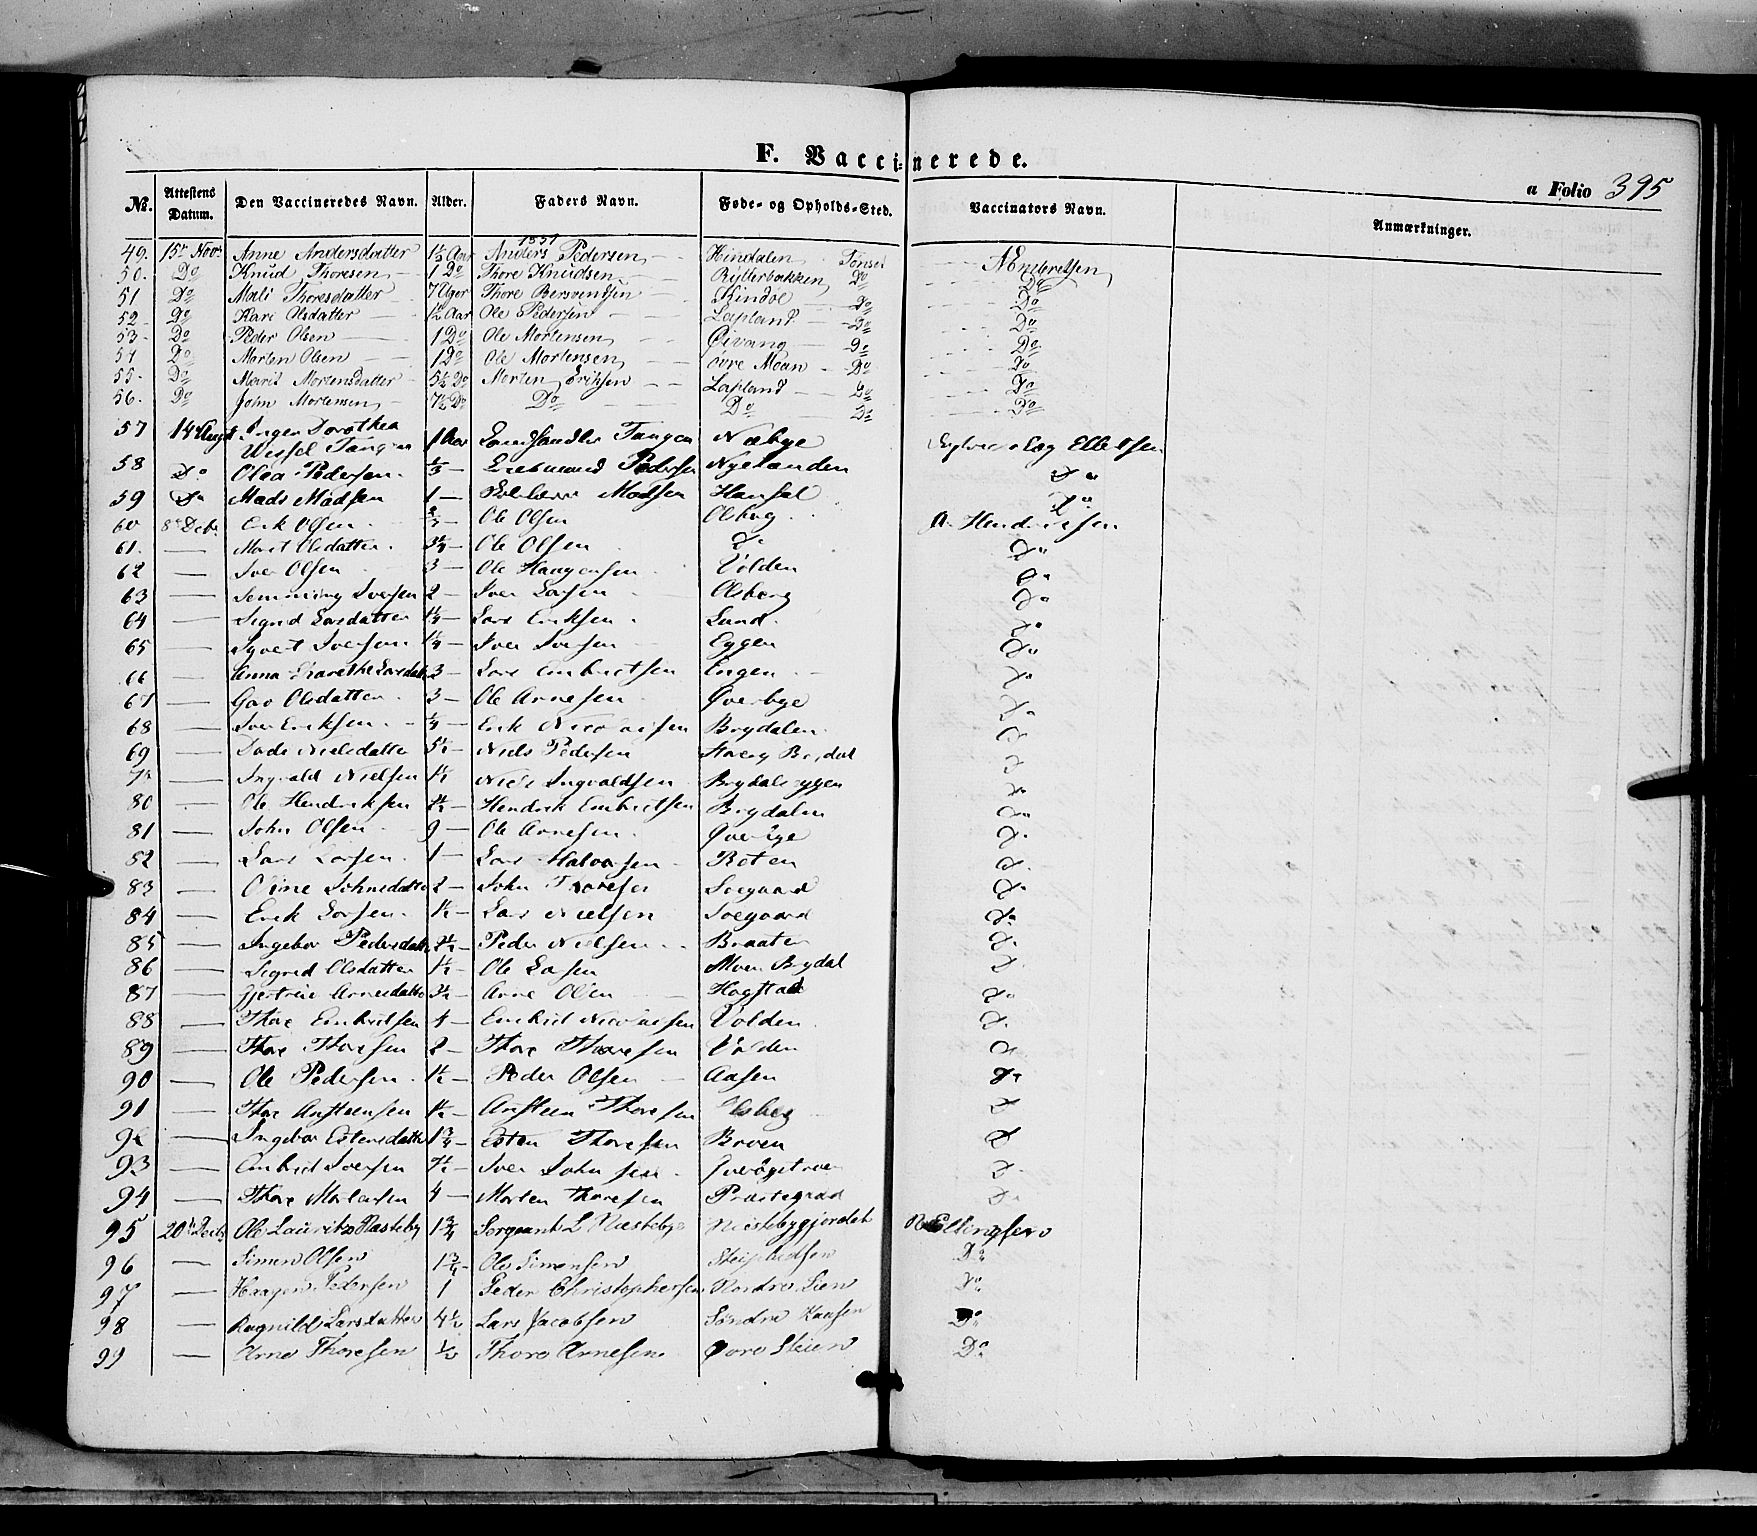 F. Vaccinerede.
a Folio 395
No. Attestens Datum. Den Vaccineredes Navn. Alder. Faders Navn. Føde- og Opholds-Sted. Vaccinators Navn. Anmærkninger.
1851
49. 15de Novr Anne Andersdatter 1½ Aar Anders Pedersen Hindalen Tønset N Embretsen
50. Do Knud Thoresen 1 Do Thore Knudsen Rytterbakken Do Do
51 Do Mali Thoresdatter 7 Uger Thore Bersvendsen Kindøl Do Do
52 Do Kari Olsdatter 1½ Aar Ole Pedersen Lapland Do Do
53 Do Peder Olsen 1 Do Ole Mortensen Øivang Do Do
54 Do Morten Olsen 1 Do Ole Mortensen øvre Moan Do Do
55. Do Marit Mortensdatter 5½ Do Morten Eriksen Lapland Do Do
56. Do John Mortensen 7½ Do Do Do Do Do
57 14 Augst Inger Dorothea
Wessel Tangen 1 Aar Landhandler Tangen Næbye Ellefsen
58 Do Olea Pedersen Pedersen Nyelanden Do
59 Do Mads Madsen 1 — Madsen Do
60 8de Decbr Erik Olsen Ole Olsen Olsberg A. Hendriksen
61. — Marit Olsdatter 3½ — Ole Olsen Do Do
62 — Iver Olsen 3 — Ole Haagensen Volden Do
63 — Semming Iversen 2 — Iver Larsen Olsberg Do
64 — Sigrid Larsdatter Lars Eriksen Lund Do
65 — Syvert Iversen Iver Iversen Eggen Do
66 — Anna Marethe Larsdatter 3 — Lars Embretsen Engen Do
67 — Goro Olsdatter 3 — Ole Arnesen Øverbye Do
68 — Iver Eriksen Erik Nicolaisen Brydalen Do
69 — Nielsdatter 5½ — Niels Pedersen Brydal Do
— Ingvald Nielsen Niels Ingvaldsen Brydalseggen Do
80 — Ole Hendriksen Hendrik Embretsen Brydalen Do
81 — John Olsen 9 — Ole Arnesen Øverbye Do
82 — Lars Larsen 1 — Lars Halvorsen Roten Do
83 — Oline Johnsdatter 2 — John Thoresen Soegaard Do
84 — Erik Larsen 1½ — Lars Nielsen Soegaard Do
85 — Ingebor Pedersdatter 2½ — Peder Nielsen Braaten Do
86 — Sigrid Olsdatter 1½ — Ole Larsen Moen Brydal Do
87 — Gjertrue Arnesdatter 3½ — Arne Olsen Hogstad Do
88 — Thore Embretsen 4 — Embret Nicolaisen Volden Do
89 — Thore Thoresen 2 — Thore Thoresen Volden Do
90 — Ole Pedersen 1½ — Peder Olsen Aasen Do
91 — Thore Ansteensen 1½ — Ansteen Thoresen Olsberg Do
92 — Ingebor Estensdatter 1¾ — Esten Thoresen Broen Do
93 — Embret Iversen 7½ — Iver Johnsen Do
94 — Thore Mortensen 4 — Morten Thoresen Præstegaard Do
95 20de Decbr Ole Lauritz Næsteby 1¾ Sergeant L Næsteby Næstebygjordet N Ellingsen
96 — Simen Olsen 1¾ Ole Simensen Do
97 — Haagen Pedersen 1 Peder Christophersen Nordre Lien Do
98 — Ragnild Larsdatter 4½ Lars Jacobsen Søndre Kaasen Do
99 — Arne Thoresen ½ Thore Arnesen Øvre Steien Do